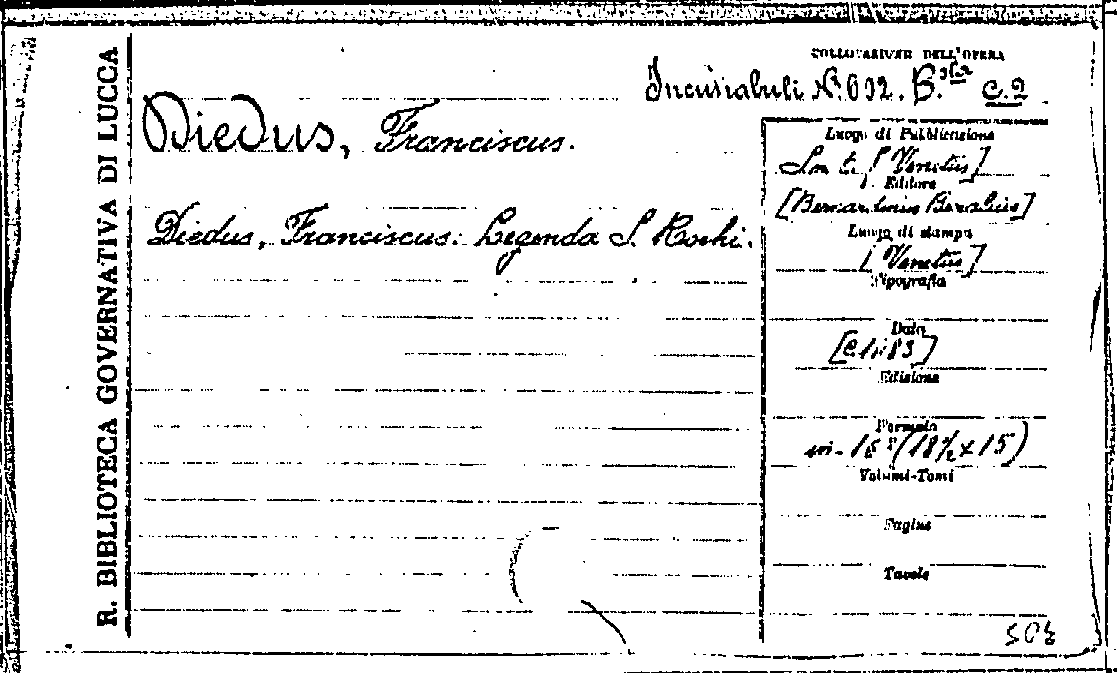 R. BIBLIOTECA GOVERNATIVA DI LUCCA
COLLOCAZIONE DELL'OPERA
Incunabuli N. 692. B.sta c.2
Diedus, Franciscus.
Diedus, Franciscus: Legenda S. Rochi.
Luogo di Pubblicazione
[Venetiis]
Editore
[Bernardinus Benalius]
Luogo di stampa
[Venetiis]
Tipografia
Data
Edizione
Formato
in-16° (18½ x 15)
Volumi-Tomi
Pagine
Tavole